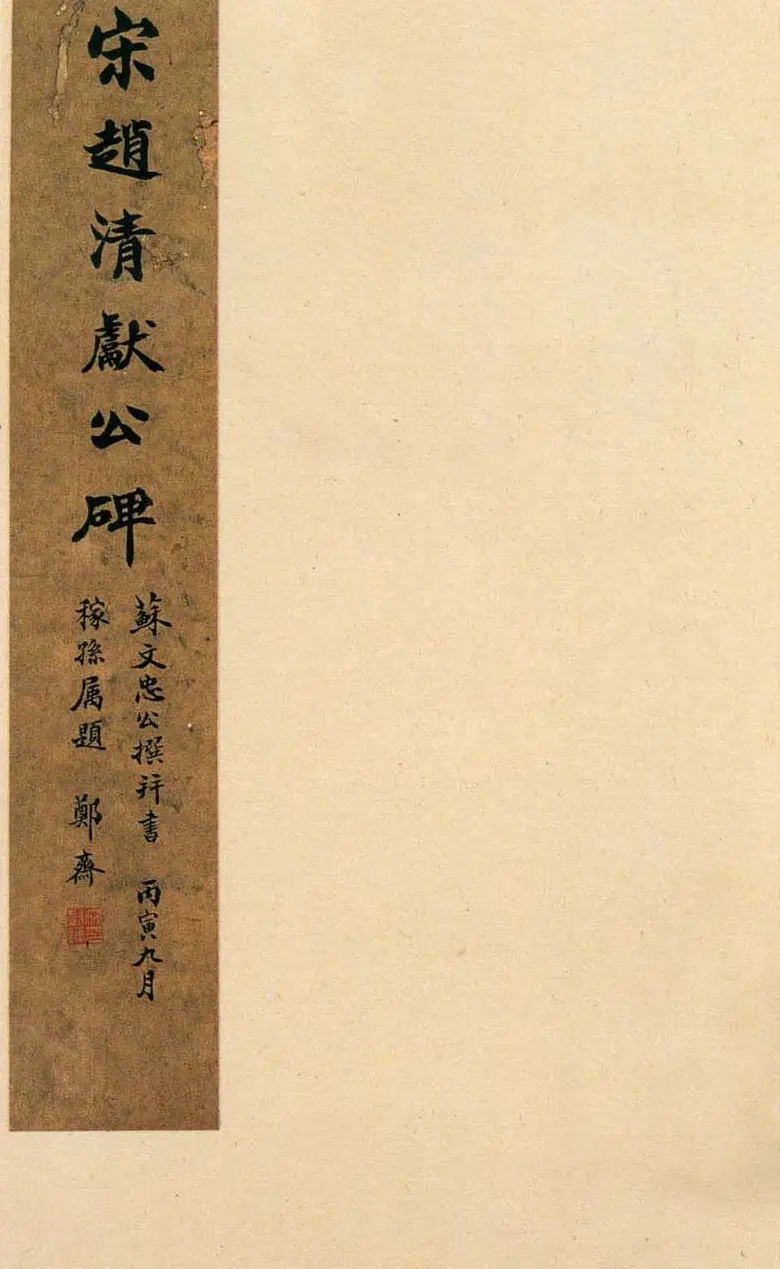 宋趙清獻公碑
蘇文忠公撰并書 丙寅九月
稼孫属題 鄭齋